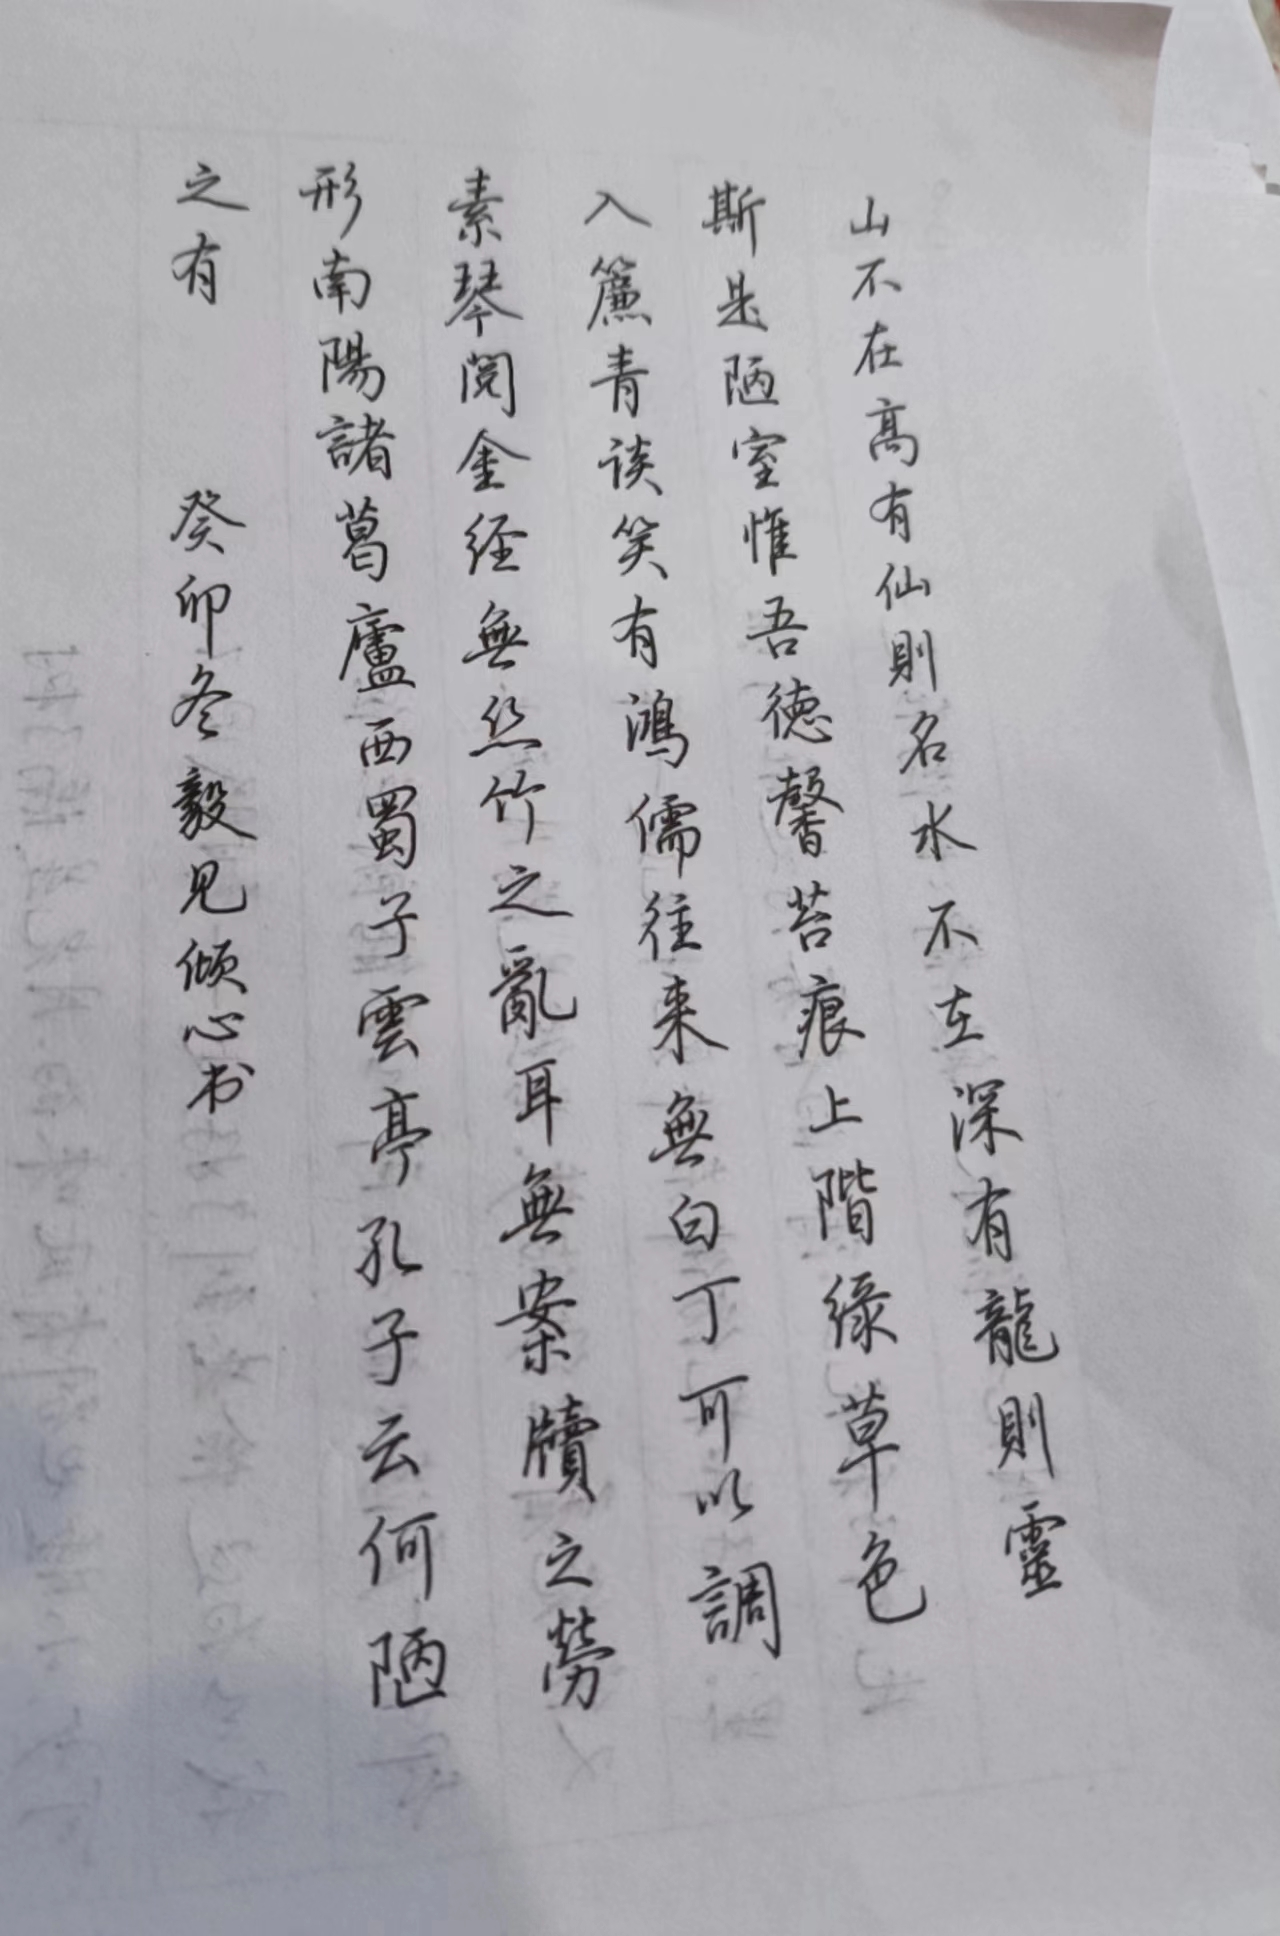 山不在高有仙則名水不在深有龍則靈
斯是陋室惟吾德馨苔痕上階緑草色
入簾青谈笑有鴻儒往来無白丁可以調
素琴閲金経無丝竹之亂耳無案牘之勞
形南陽諸葛廬西蜀子雲亭孔子云何陋
之有 癸卯冬毅见倾心书